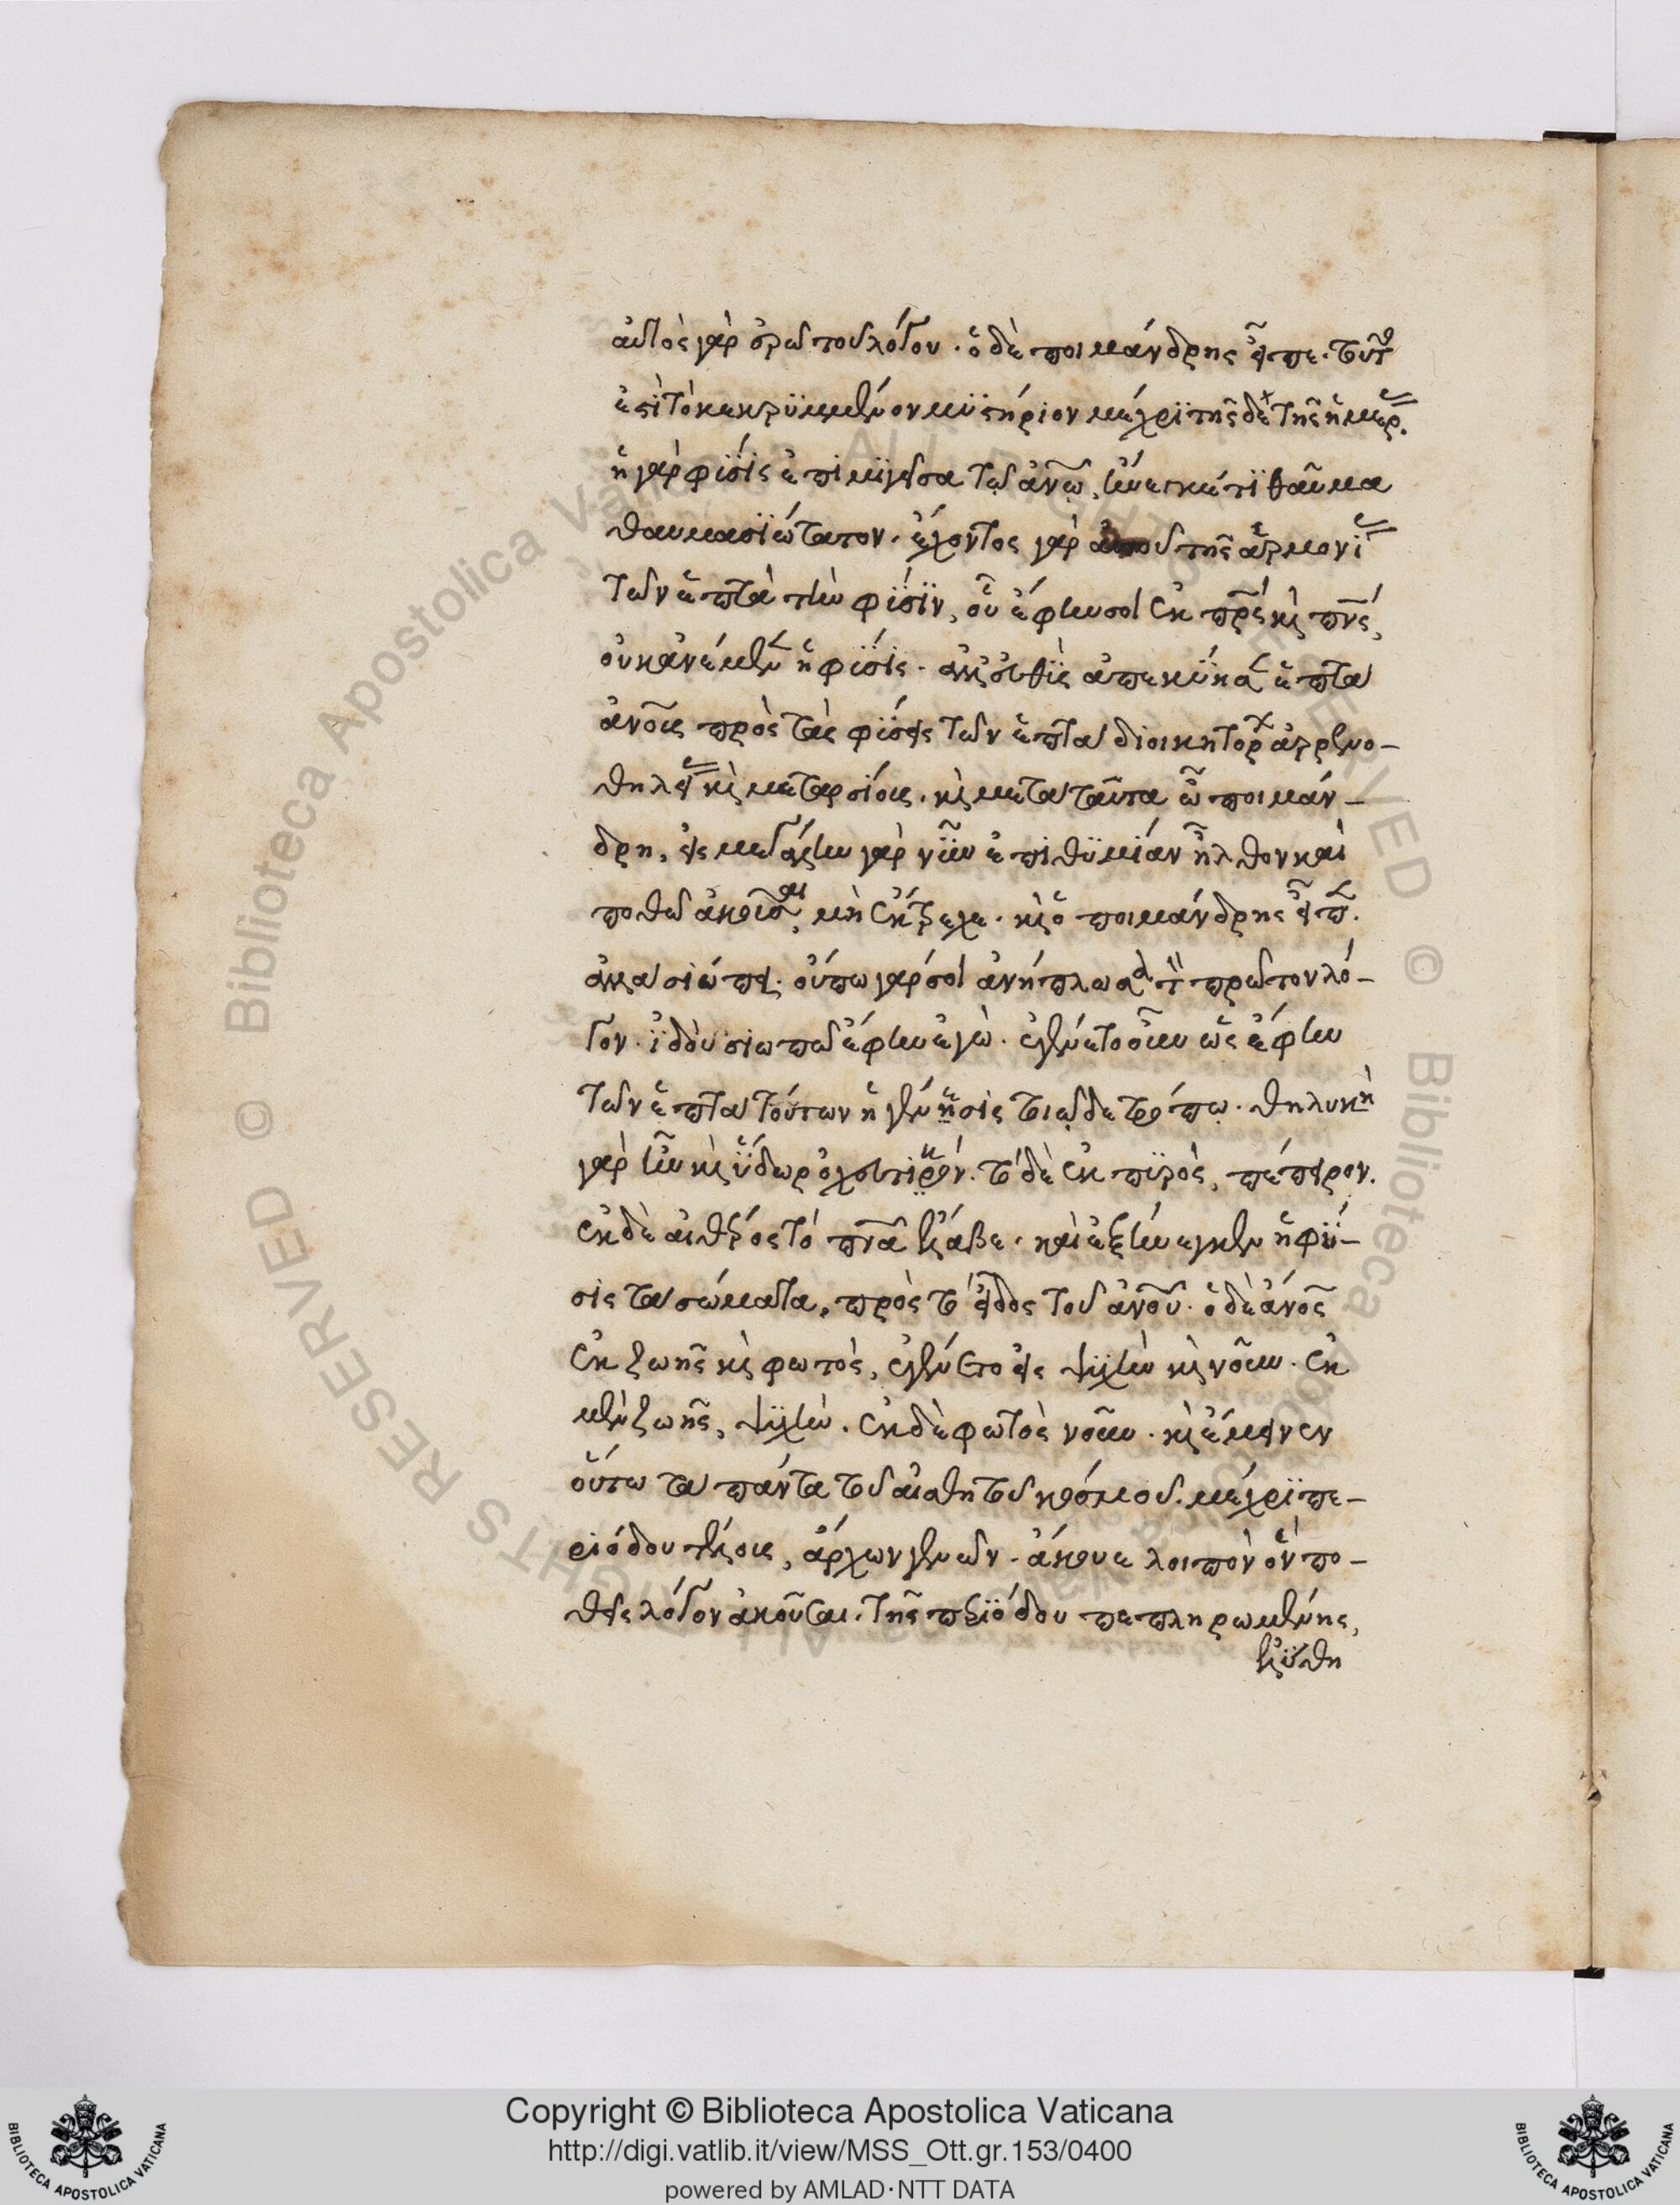 αὐτὸς γὰρ ἐρῶ τοῦ λόγου. ὁ δὲ ποιμάνδρης εἶπε. τοῦτό
ἐστὶ τὸ κεκρϋμμένον μϋστήριον μέχρϊ τῆσδε τῆς ἡμέρας.
ἡ γὰρ φϋσις ἐπιμϊγεῖσα τῷ ἀνῶ, ἤνεγκέ τϊ θαῦμα
θαυμασϊώτατον. ἔχοντος γὰρ αὐτοῦ τῆς ἁρμονίας
τῶν ἑπτὰ τὴν φϋσϊν, οὗ ἔφην σοι ἐκ πρς κὶ πνς,
οὐκ ἀνέμενεν ἡ φϋσις. ἀλλ' εὐθὺς ἀπεκύησεν ἑπτὰ
ἀνους πρὸς τὰς φϋσεις τῶν ἑπτὰ διοικητόρων ἀρρενο-
θήλεας κὶ μεταρσίους. κὶ μετὰ ταῦτα ὦ ποιμάν-
δρη, εἰς μεγάλην γὰρ νῦν ἐπιθϋμίαν ἦλθον καὶ
ποθῶ ἀκοῦσαι, μὴ ἔκτρεχε. κὶ ὁ ποιμάνδρης εἶπεν.
ἀλλὰ σιώπα. οὔπω γάρ σοι ἀνήπλωσα τὸν πρῶτον λό-
γον. ἰδοὺ σιωπῶ ἔφην ἐγώ. ἐγένετο οὖν ὡς ἔφην
τῶν ἑπτὰ τούτων ἡ γένησις τοιῷδε τρόπῳ. θηλυκὴ
γὰρ ἦν κὶ ὕδωρ ὀχευτικόν. τὸ δὲ ἐκ πϋρὸς, πέπειρον.
ἐκ δὲ αἰθέρος τὸ πνα ἔλαβε. καὶ ἐξήνεγκεν ἡ φϋ-
σις τὰ σώματα, πρὸς τὸ εἶδος τοῦ ἀνου. ὁ δὲ ἀνος
ἐκ ζωῆς κὶ φωτὸς, ἐγένετο εἰς ψϋχὴν κὶ νοῦν. ἐκ
μὲν ζωῆς, ψϋχὴν. ἐκ δὲ φωτὸς νοῦν. κὶ ἔμεινεν
οὕτω τὰ πάντα τοῦ αἰσθητοῦ κόσμου. μέχρϊ πε-
ριόδου τέλους, ἀρχῶν γενῶν. ἄκουε λοιπὸν ὃν πο-
θεῖς λόγον ἀκοῦσαι. τῆς περϊόδου πεπληρωμένης,
ἐλύθη
Copyright © Biblioteca Apostolica Vaticana
http://digi.vatlib.it/view/MSS_Ott.gr.153/0400
powered by AMLAD·NTT DATA